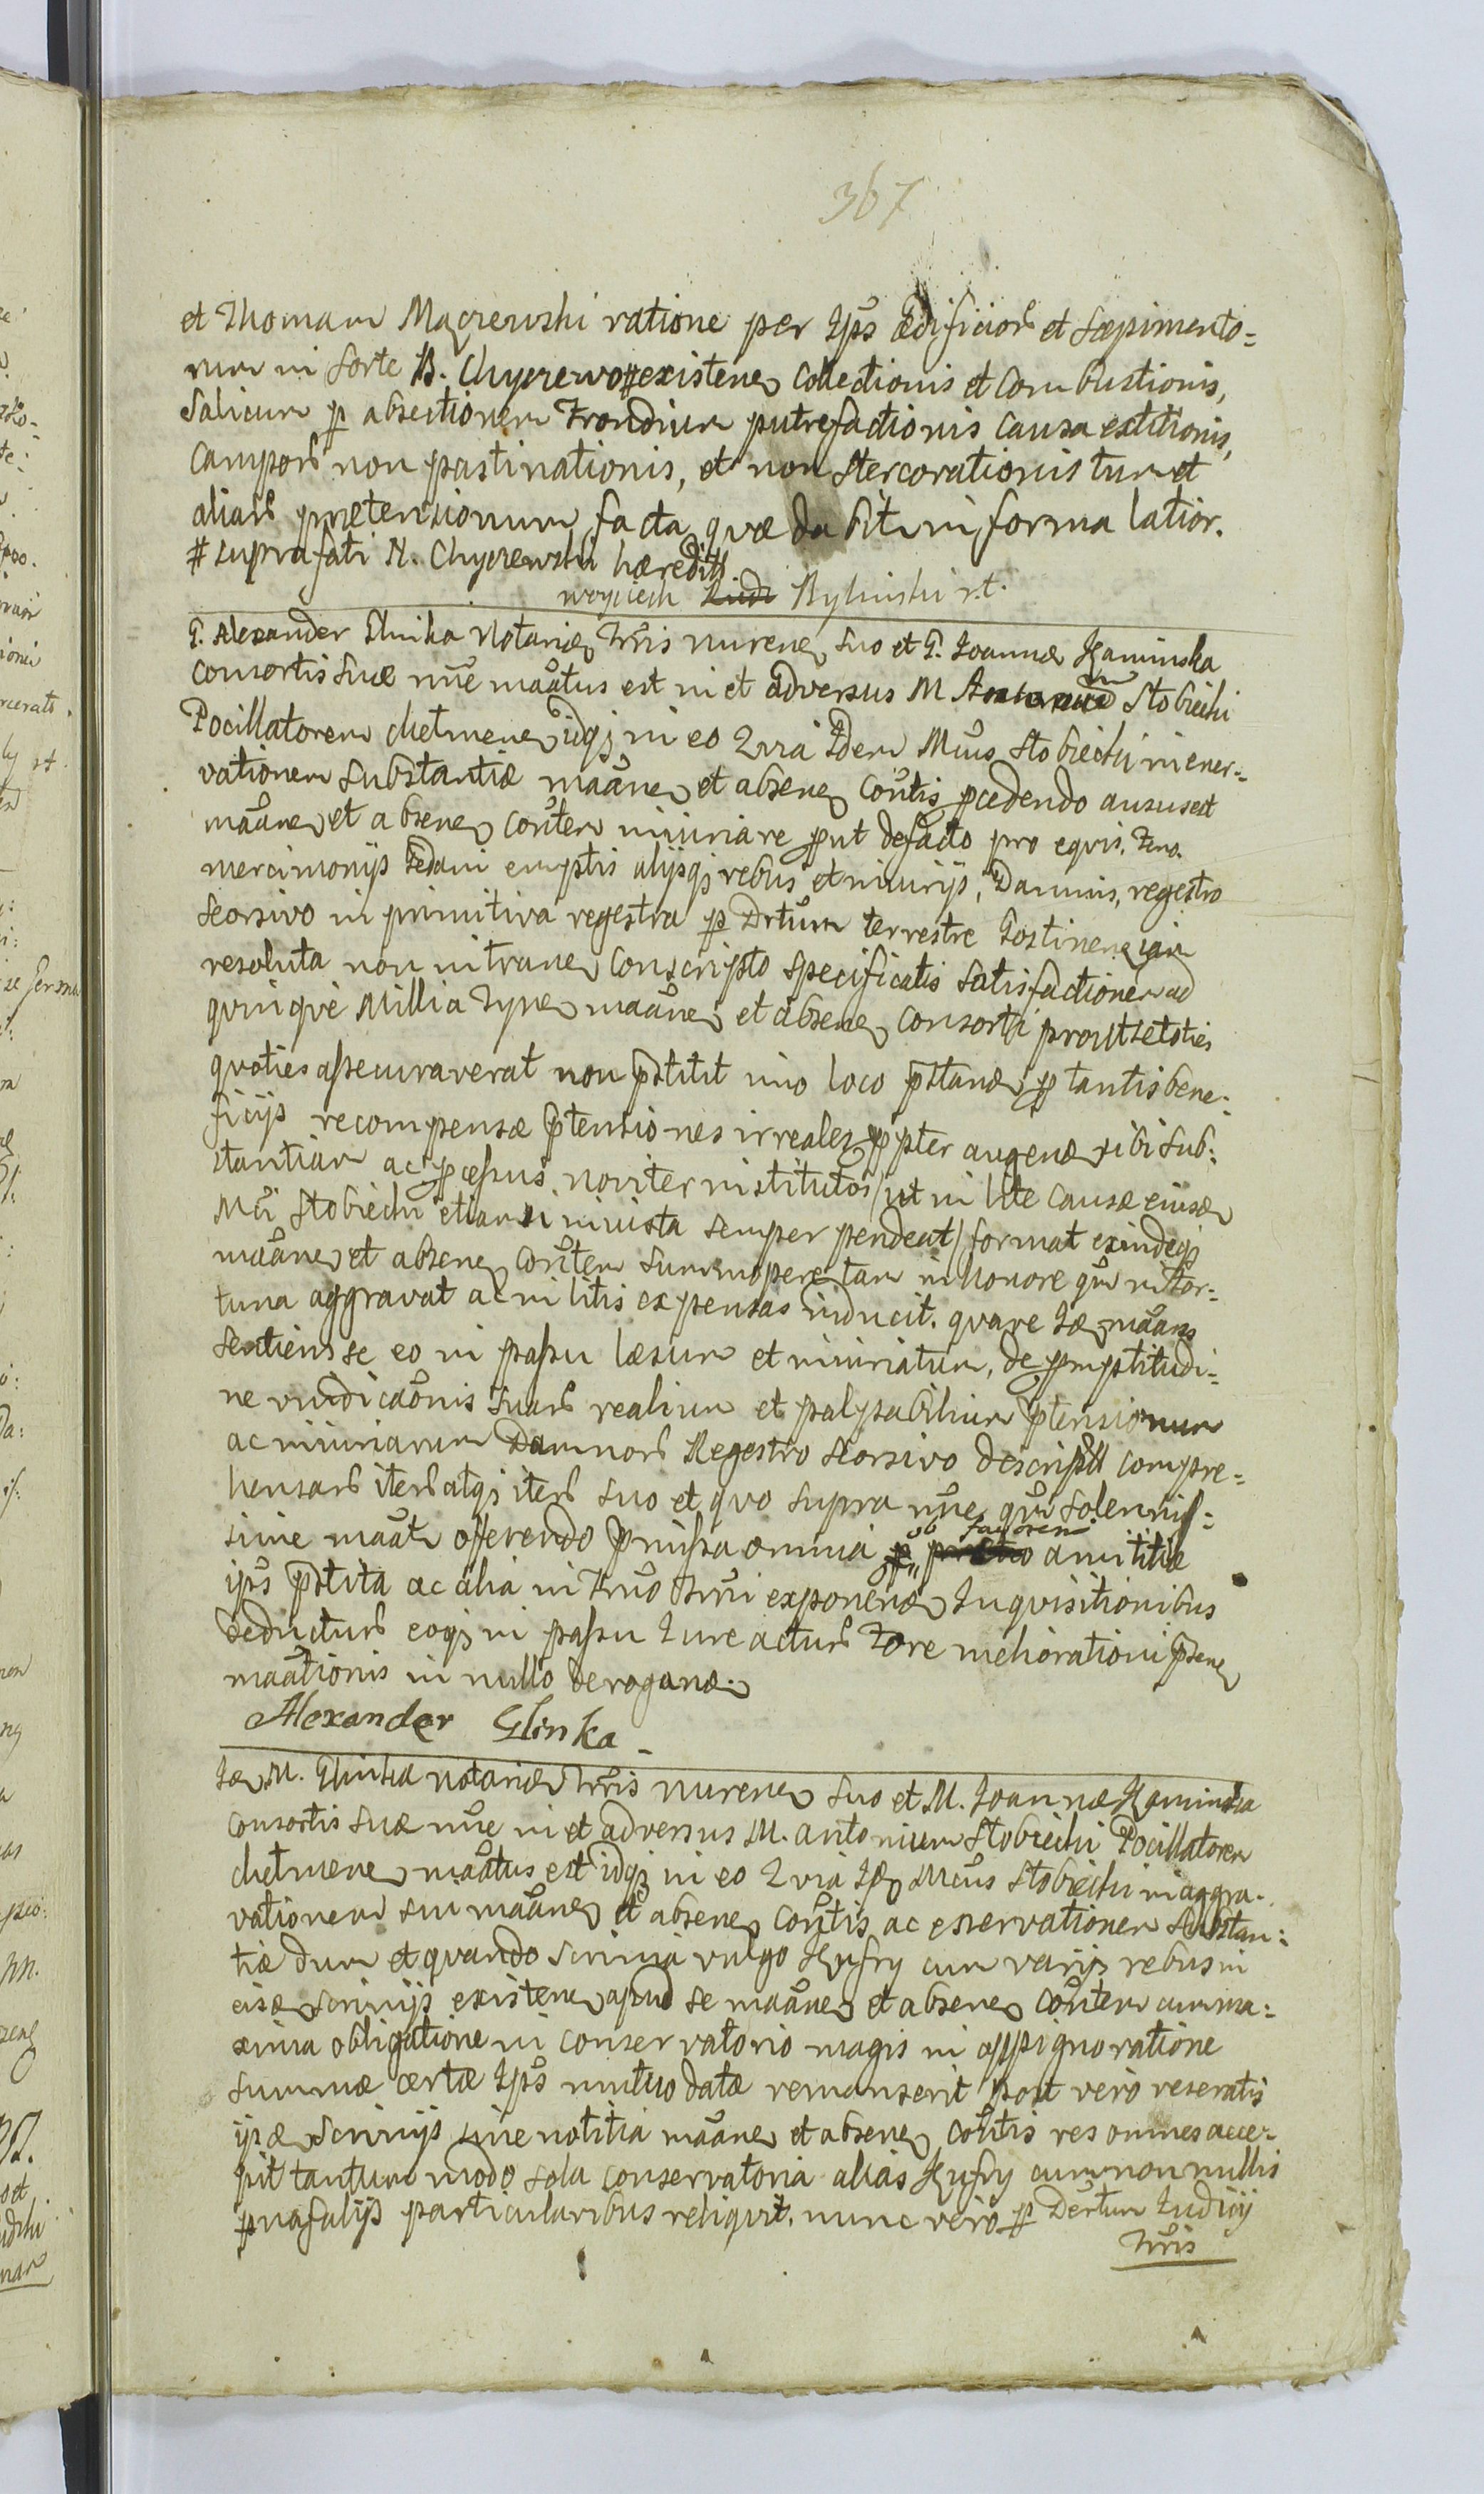 367
et Thomam Maczewski ratione per Ip̃s Ædificiorũ et Sæpimento=
rum in Sorte B. Chyczewo # existen̄ Collectionis et Combustionis,
Salicum p absectionem Frondium putrefactionis causa extitionis,
Camporũ non pastinationis, et non Stercorationis tum et
aliarũ prætensionum facta quæ dabit in forma latior.
# suprafati N. Chyczewski hæredit̃
woyciech Rylinski r.t.
G. Alexander Glinka Notariũ Trr̃is Nuren̄ Suo et G. Joannæ Kaminska
Consortis Suæ nñe maãtus est in et adversus M Antonium Stobiecki
Pocillatorem chelmen̄ idq; in eo Quia Idem Mñus Stobiecki in ener=
vationem Substantiæ maãn̄ et absen̄ Cõntis pcedendo ausus est
maãn̄ et absen̄ Cõntem iniuriare put de facto pro equis,
mercimonijs Gedani emptis alijsq; rebus et iniurijs, Damnis, regestro
seorsivo in primitiva regestra p Drtũm terrestre Gostinen̄ iam
resoluta non intran̄ conscripto specificatis satisfactionem ad
quinque Millia Tynf̄ maãn̄ et absen̄ Consorti prout se toties
quoties assecuraverat non p̃stitit imo loco p̃stan̄ p tantis bene=
ficijs recompensæ p̃tensiones irreales ppter augen̄ sibi Sub=
stantiam ac pcessus noviter institutos /ut in lite causæ eiusd̄
Mñi Stobiecki etiam iniusta semper pendeat/ format exindeq;
maãn̄ et absen̄ Cõntem Summopere tam in honore qũm in For=
tuna aggravat ac in litis expensas inducit. quare Id̄ maãns
sentiens se eo in passu læsum et iniuriatum, de pmptitudi=
ne vindicãonis Suarũ realium et palpabilium p̃tensionum
ac iniuriarum Damnorũ Regestro Seorsivo descript̃ compre=
hensarũ iterũ atq; iterũ suo et quo supra nñe qũm solennis=
sime maãt̄ offerendo p̃missa omnia ob favorem amicitiæ
ip̃s p̃stita ac alia in Fr̃o Trr̃i exponen̄ Inquisitionibus
deducturũ eoq; in passu Jure acturũ Fore meliorationi p̃sen̄
maãtionis in nullo derogan̄.
Alexander Glinka
Id̄ M. Glinka notariũ Trr̃is nuren̄ suo et M. Joannæ Kaminska
Consortis Suæ nñe in et adversus M. Antonium Stobiecki Pocillatorem
chelmen̄ maãtus est idq; in eo Quia Id̄ Mñus Stobiecki in aggra=
vationem Sui maãn̄ et absen̄ Cõntis ac enervationem Substan=
tiæ dum et quando scrinia vulgo Kufry cum varijs rebus in
eisd̄ scrinijs existen̄ apud se maãn̄ et absen̄ Cõntem cum ma=
xima obligatione in conservatorio magis in oppignoratione
summæ certæ Ip̃s mutuo datæ remanserit post vero reseratis
ijsd̄ scrinijs sine notitia maãn̄ et absen̄ Cõntis res omnes acce=
pit tantum modo sola conservatoria alias Kufry cum nonnullis
particularibus reliquit. nunc vero p Decrtum Iudicij
Trr̃is